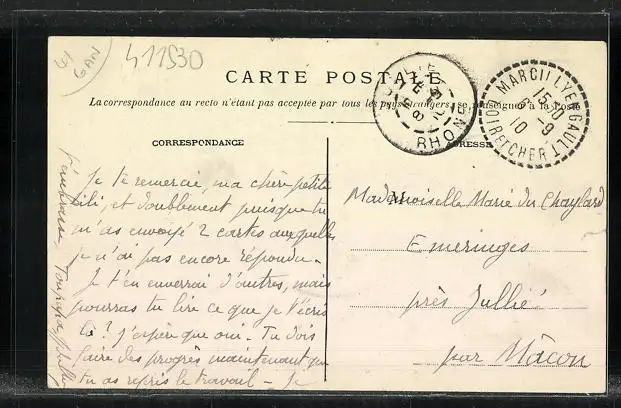 41
GAN
411530
CARTE POSTALE
La correspondance au recto n'étant pas acceptée par tous les pays étrangers, se renseigner à la Poste
CORRESPONDANCE
ADRESSE
RHONE
MARCILLY EN GAULT
15 30
6 - 9
10
LOIR ET CHER
Je te remercie, ma chère petite
Lili, et doublement puisque tu
m'as envoyé 2 cartes auxquelles
je n'ai pas encore répondu.
Je t'en enverrai d'autres, mais
pourras tu lire ce que je t'écris
là? j'espère que oui. Tu dois
faire des progrès maintenant que
tu as repris le travail - Je
t'embrasse
Ton papa
Mademoiselle Marie du Chaylard
Emeringes
près Jullié
par Mâcon